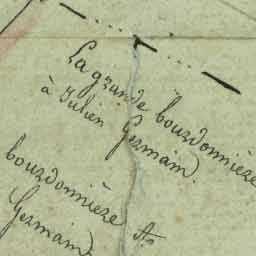 La grande bourdonnière
à Julien Germain.
bourdonnière
Germain